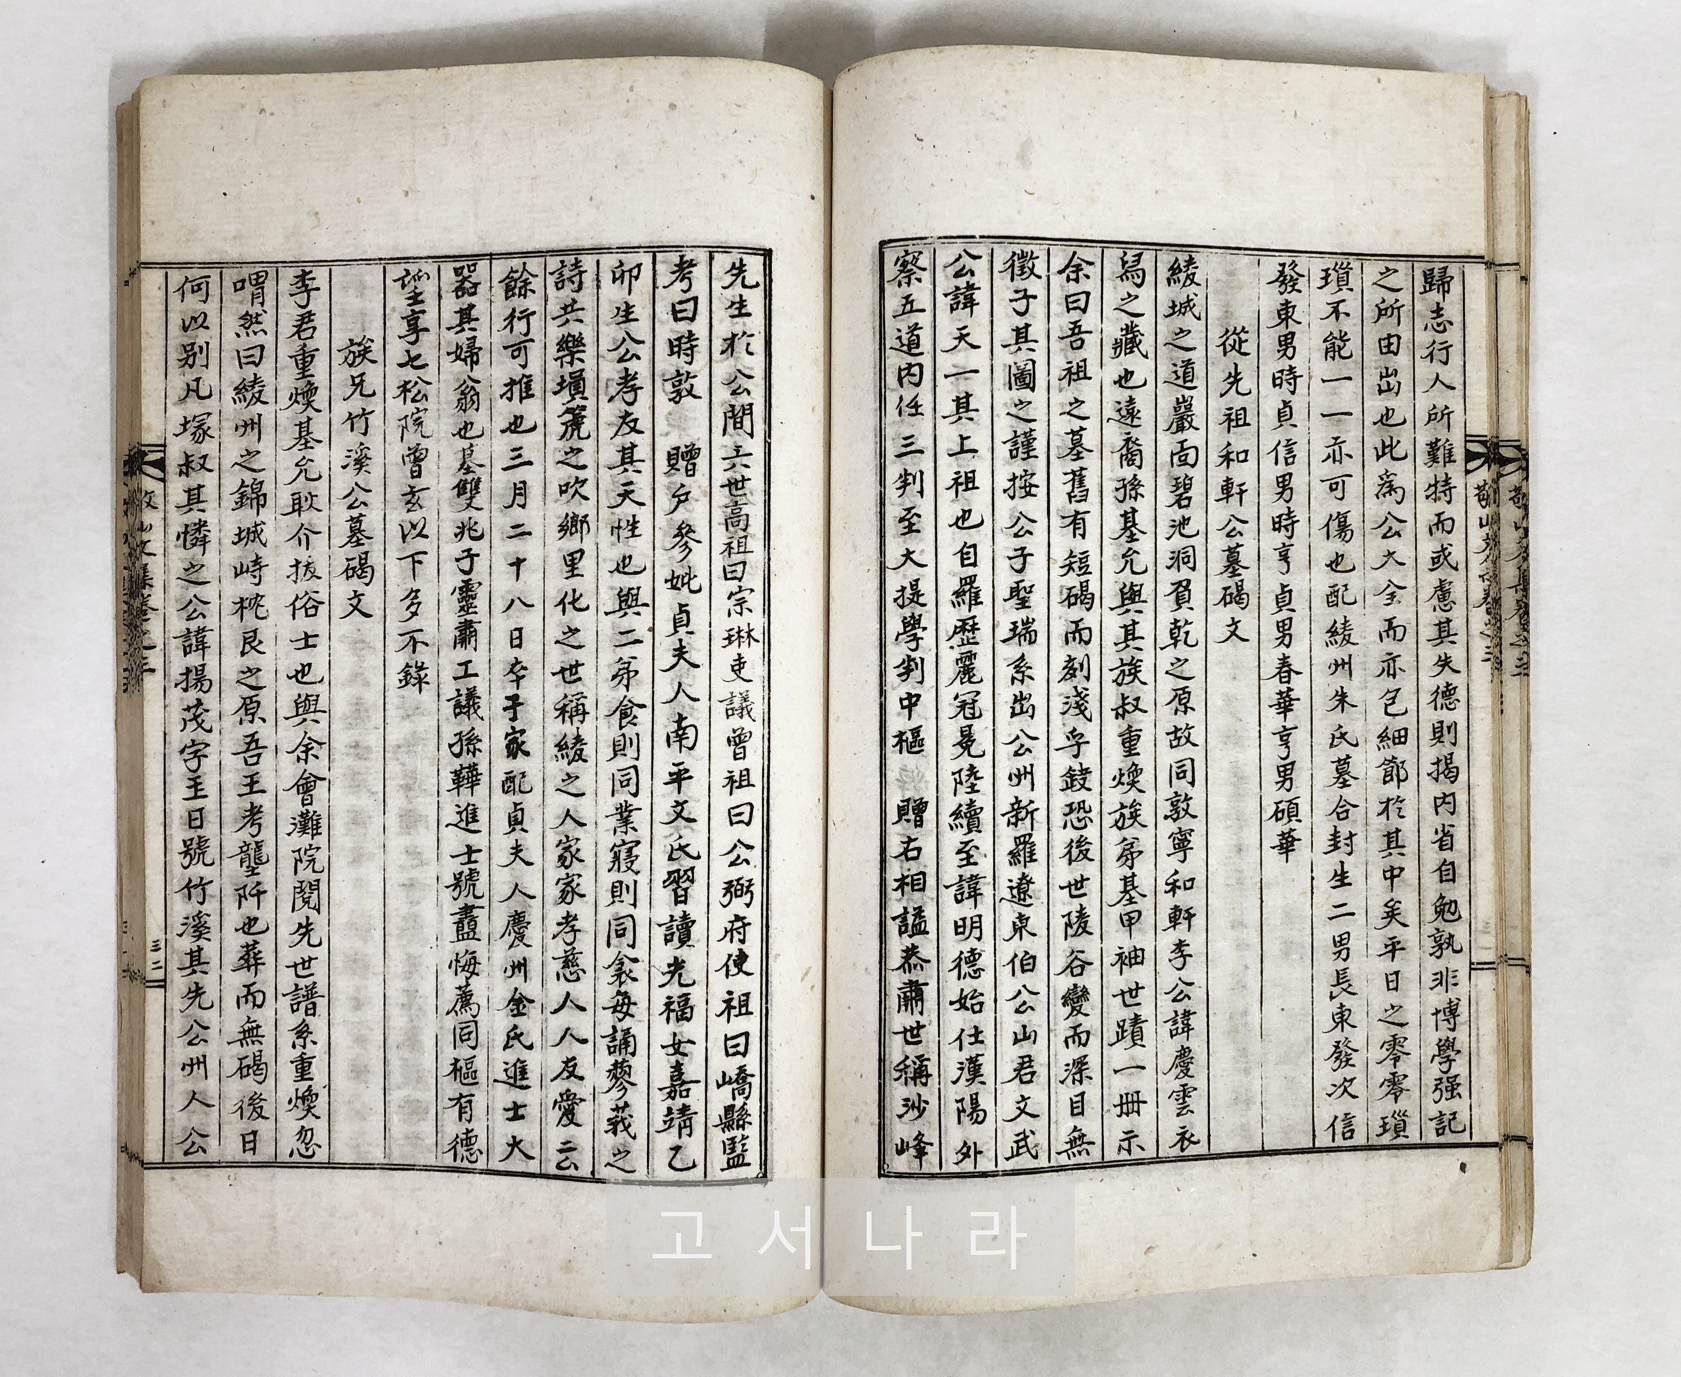 歸志行人所難特而或慮其失德則揭內省自勉孰非博學强記
之所由出也此爲公大全而亦包細節於其中矣平日之零零瑣
瑣不能一一亦可傷也配綾州朱氏墓合封生二男長東發次信
發東男時貞信男時亨貞男春華亨男碩華
從先祖和軒公墓碣文
綾城之道巖面碧池洞負乾之原故同敦寧和軒李公諱慶雲衣
舃之藏也遠裔孫基允與其族叔重煥族弟基甲袖世蹟一冊示
余曰吾祖之墓舊有短碣而刻淺字鈠恐後世陵谷變而深目無
徵子其圖之謹按公子聖瑞系出公州新羅遼東伯公山君文武
公諱天一其上祖也自羅歷麗冠冕陸續至諱明德始仕漢陽外
察五道內任三判至大提學判中樞 贈右相謚恭肅世稱沙峰
先生於公間六世高祖曰宗琳吏議曾祖曰公弼府使祖曰嶠縣監
考曰時敦 贈戶參妣貞夫人南平文氏習讀光福女嘉靖乙
卯生公孝友其天性也與二弟食則同業寢則同衾每誦蓼莪之
詩共樂塤篪之吹鄕里化之世稱綾之人家家孝慈人人友愛云
餘行可推也三月二十八日卒子家配貞夫人慶州金氏進士大
器其婦翁也墓雙兆子靈肅工議孫韡進士號蠱悔薦同樞有德
望享七松院曾玄以下多不錄
族兄竹溪公墓碣文
李君重煥基允耿介拔俗士也與余會灘院閱先世譜系重煥忽
喟然曰綾州之錦城峙枕艮之原吾王考壟阡也葬而無碣後日
何以別凡塚叔其憐之公諱揚茂字圭日號竹溪其先公州人公
三二
고서나라